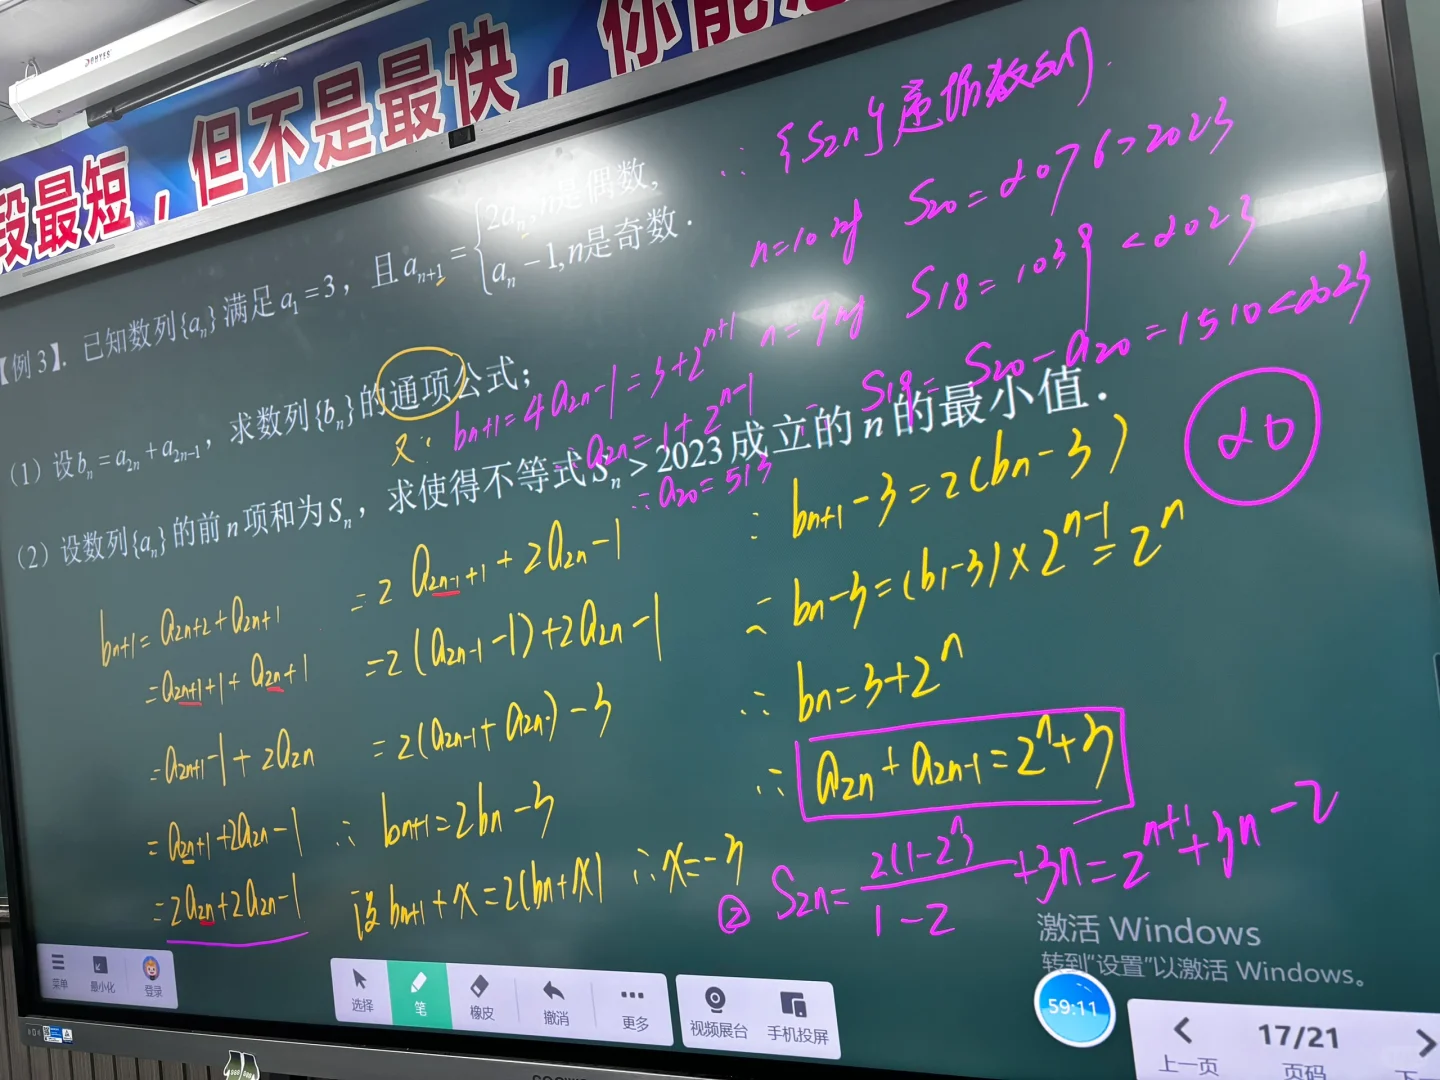 段最短，但不是最快，你能
【例3】. 已知数列{aₙ}满足a₁=3，且aₙ₊₁={2aₙ, n是偶数, aₙ−1, n是奇数.
（1）设bₙ=a₂ₙ+a₂ₙ₋₁，求数列{bₙ}的通项公式；
（2）设数列{aₙ}的前n项和为Sₙ，求使得不等式Sₙ>2023成立的n的最小值.
bₙ₊₁=a₂ₙ₊₂+a₂ₙ₊₁
=a₂ₙ₊₁₊₁+a₂ₙ₊₁
=a₂ₙ₊₁−1+2a₂ₙ
=a₂ₙ₊₁+2a₂ₙ−1
=2a₂ₙ+2a₂ₙ−1
=2a₂ₙ₋₁₊₁+2a₂ₙ−1
=2(a₂ₙ₋₁−1)+2a₂ₙ−1
=2(a₂ₙ₋₁+a₂ₙ)−3
∴ bₙ₊₁=2bₙ−3
设bₙ₊₁+x=2(bₙ+x) ∴x=−3
∴ bₙ₊₁−3=2(bₙ−3)
∴ bₙ−3=(b₁−3)×2ⁿ⁻¹=2ⁿ
∴ bₙ=3+2ⁿ
∴ a₂ₙ+a₂ₙ₋₁=2ⁿ+3
② S₂ₙ=2(1−2ⁿ)/(1−2)+3n=2ⁿ⁺¹+3n−2
∴ {S₂ₙ}是递增数列.
n=10时 S₂₀=2076>2023
n=9时 S₁₈=1039<2023
又∵ bₙ₊₁=4a₂ₙ−1=3+2ⁿ⁺¹
∴a₂ₙ=1+2ⁿ⁻¹
∴a₂₀=513
∴ S₁₉=S₂₀−a₂₀=1510<2023
20
激活 Windows
转到“设置”以激活 Windows。
菜单 最小化 登录
选择 笔 橡皮 撤消 更多
视频展台 手机投屏
59:11
17/21
上一页 页码